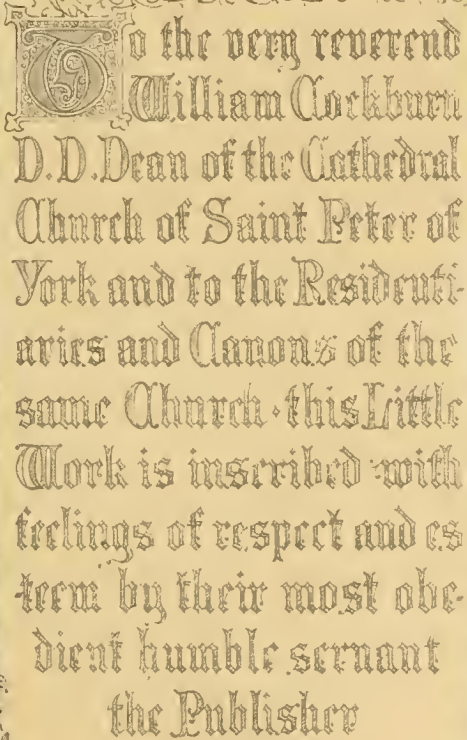 To the very reverend
William Cockburn
D.D. Dean of the Cathedral
Church of Saint Peter of
York and to the Residenti-
aries and Canons of the
same Church · this Little
Work is inscribed with
feelings of respect and es
teem by their most obe-
dient humble servant
the Publisher